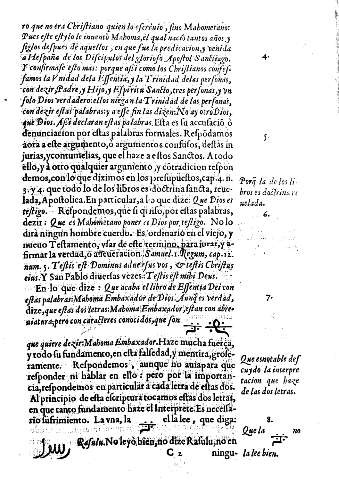 ro que no era Christiano quien lo escrivio, sino Mahometano:
Pues este estylo le invento Mahoma, el qual nacio tantos años, y
siglos despues de aquellos, en que fue la predicacion, y venida
a Hespaña de los Discipulos del glorioso Apostol Santiago.
4.
Y confirmase esto mas: porque assi como los Christianos confes-
samos la Vnidad de la Essentia, y la Trinidad de las personas,
con dezir Padre, y Hijo, y Espiritu Sancto, tres personas, y un
solo Dios verdadero: ellos niegan la Trinidad de las personas,
con dezir estas palabras; a esse fin las dizen: No ay otro Dios,
que Dios. Assi declaran estas palabras. Esta es su acusacion, ò
denunciacion por estas palabras formales. Respondamos
5.
aora a este argumento, ò argumentos confusos, dessas in-
jurias, y contumelias, que el haze a estos Sanctos. A todo
ello, y à otro qualquier argumento, y contradicion respon
demos, con lo que diximos en los presupuestos, cap. 4. n.
3. y 4. que todo lo de los libros es doctrina sancta, reue-
lada, Apostolica. En particular, a lo que dize: Que Dios es
testigo. Respondemos, que si quiso, por estas palabras,
Porq̃ la de los li-
bros es doctrina re
uelada.
6.
dezir: Que es Mahometano poner es Dios por testigo. No lo
dirà ningun hombre cuerdo. Es ordinario en el viejo, y
nueuo Testamento, vsar de este termino, para jurar, y a-
firmar la verdad, ò asseueracion. Samuel. 1. Regum, cap. 12.
num. 5. Testis est Dominus aduersus vos, & testis Christus
eius. Y San Pablo diuersas vezes: Testis est mihi Deus.
En lo que dize: Que acaba el libro de Essentia Dei con
7.
estas palabras: Mahoma Embaxador de Dios. Aunq̃ es verdad,
dize, que estas dos letras: Mahoma Embaxador, estan con abre-
uiatura; pero con caracteres conocidos, que son
que quiere dezir: Mahoma Embaxador. Haze mucha fuerça,
y todo su fundamento, en esta falsedad, y mentira, grosse-
ramente. Respondemos, aunque no auia para que
responder ni hablar en ello; pero por la importan-
cia, respondemos en particular a cada letra de estas dos.
Que es notable des
cuydo la interpre
tacion que haze
de las dos letras.
Al principio de esta escriptura tocamos estas dos letras,
en que tanto fundamento haze el Interprete. Es necessa-
rio sufrimiento. La vna, la el la lee, que diga:
8.
Que la no
la lee bien.
Rasulu. No leyò bien, no dize Rasulu, no en
C 2 ningu-